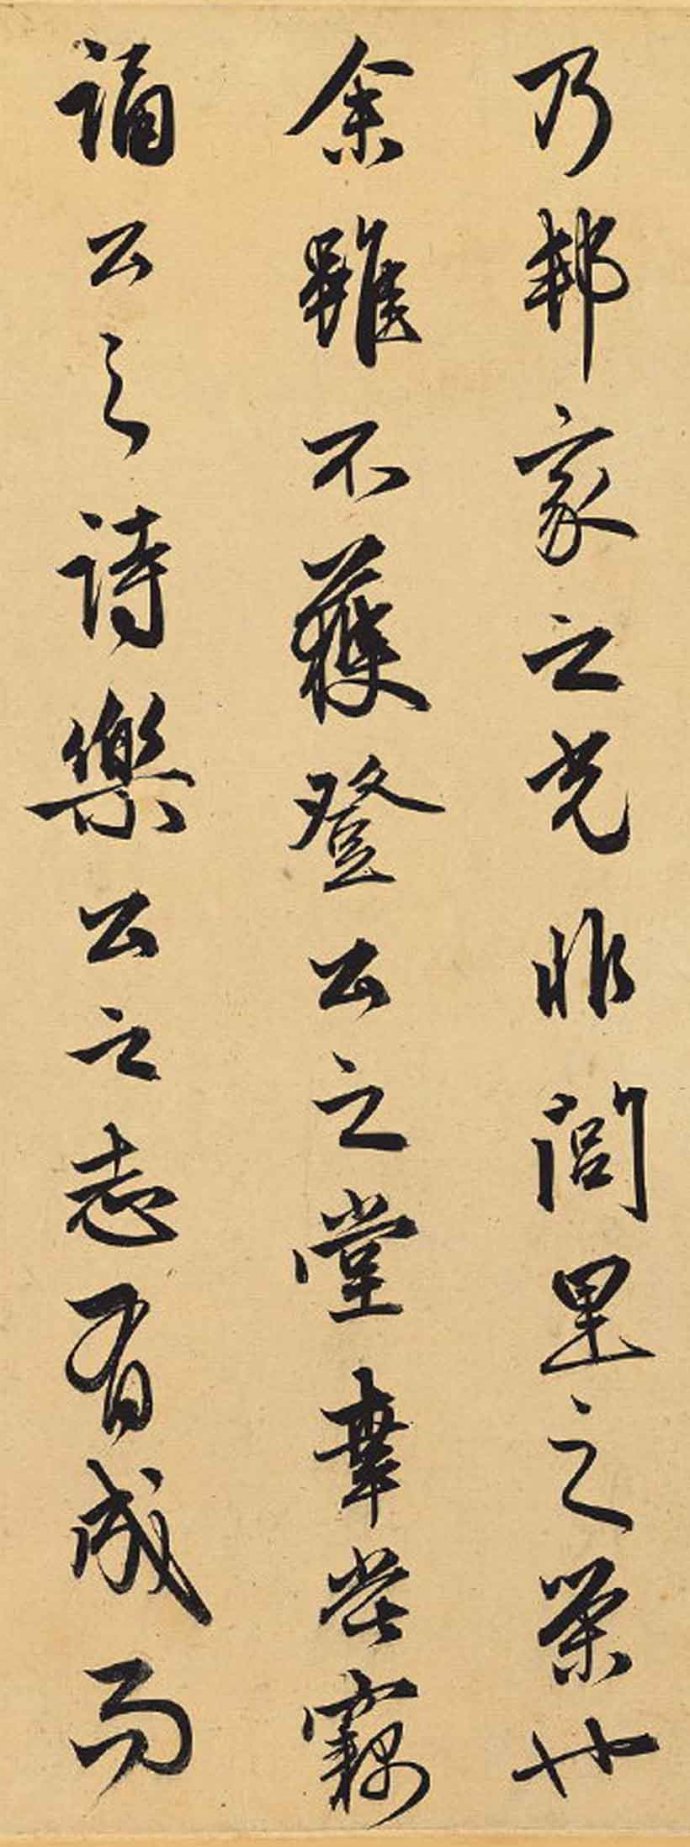 乃邦家之光非閭里之榮也
余雖不獲登公之堂幸嘗竊
誦公之詩樂公之志有成而